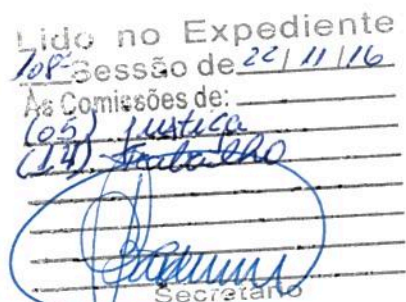 Lido no Expediente
108ª Sessão de 22/11/16
Às Comissões de:
(05) Justiça
(14) Trabalho
Secretário